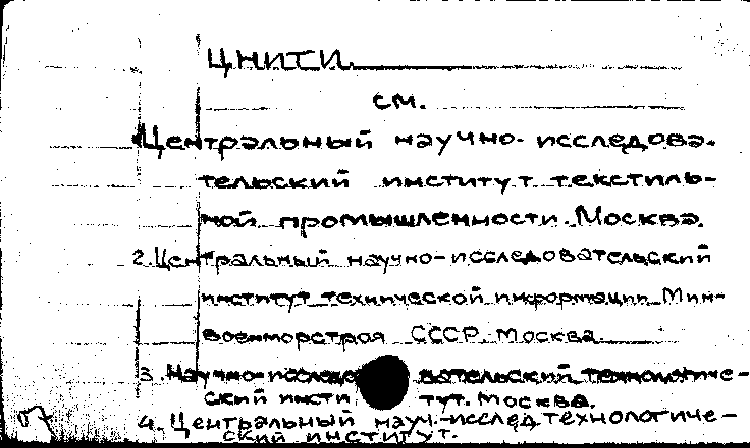 ЦНИТИ
см.
Центральный научно-исследова-
тельский институт текстиль-
ной промышленности. Москва.
2. Центральный научно-исследовательский
институт технической информации Мин-
военморстроя СССР. Москва.
3. Научно-исследовательский технологиче-
ский институт. Москва.
4. Центральный науч.-исслед. технологиче-
ский институт.